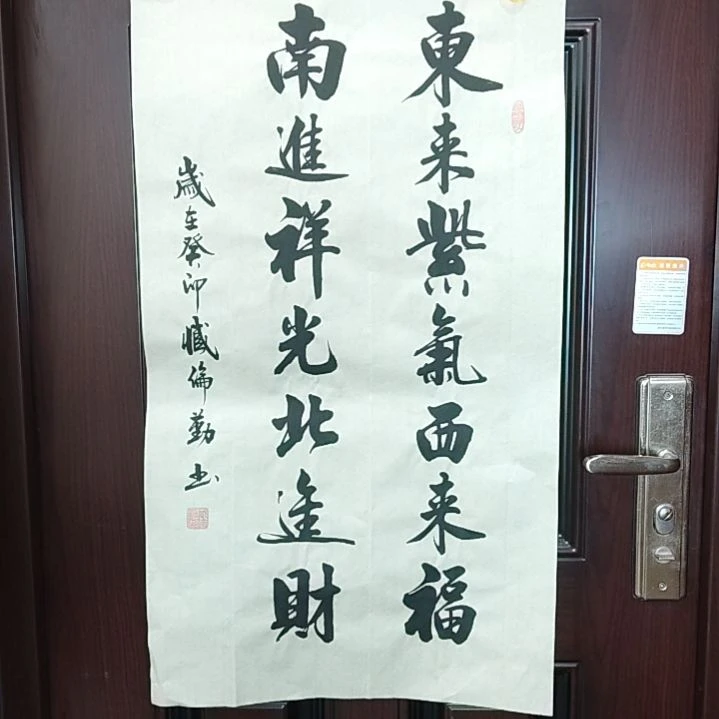 東来紫氣西来福
南進祥光北進財
歲在癸卯臧倫勤书